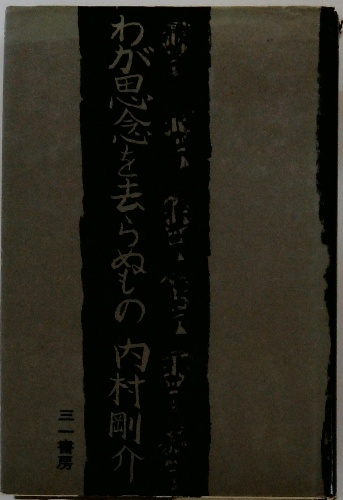 わが思念を去らぬもの 内村剛介
三一書房